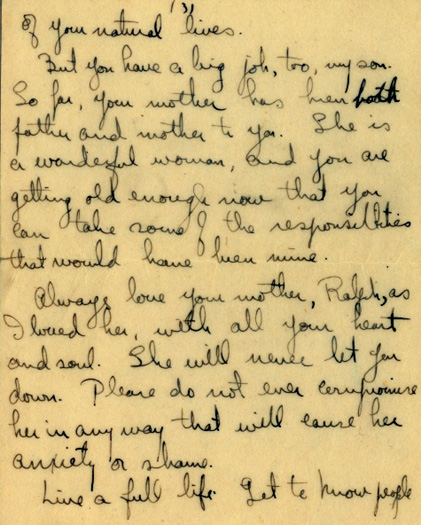 (3)
of your natural lives.
But you have a big job, too, my son.
So far, your mother has been both
father and mother to you. She is
a wonderful woman, and you are
getting old enough now that you
can take some of the responsibilities
that would have been mine.
Always love your mother, Ralph, as
I loved her, with all your heart
and soul. She will never let you
down. Please do not ever compromise
her in any way that will cause her
anxiety or shame.
Live a full life. Get to know people